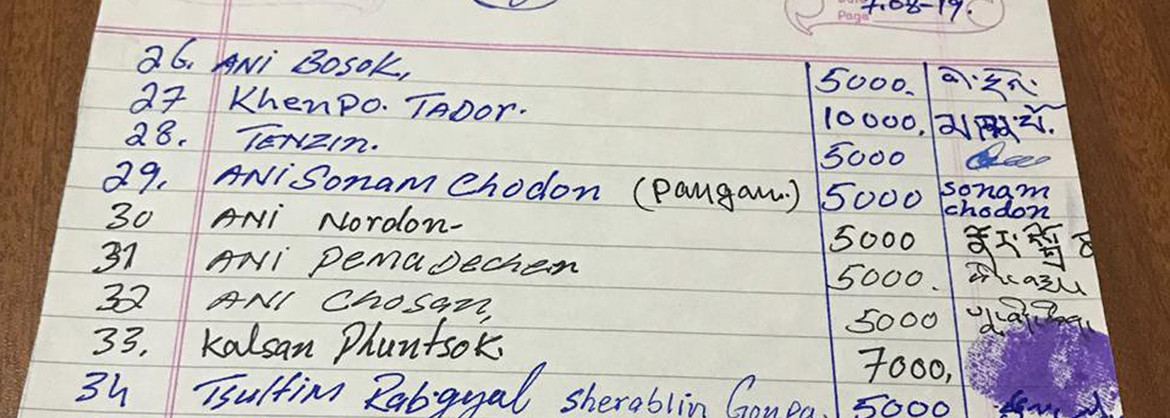 Page 7.08-19.
26. ANi BOSOK, 5000.
27 Khenpo. TADOR. 10000,
28. TENZIN. 5000
29. ANi Sonam Chodon (Pangan.) 5000 sonam chodon
30 ANi Nordon- 5000
31 ANi Pema Dechen 5000.
32 ANI Chosan, 5000
33. Kalsan Phuntsok. 7000,
34 Tsulfim Rabgyal Sherablin Gonpa. 5000